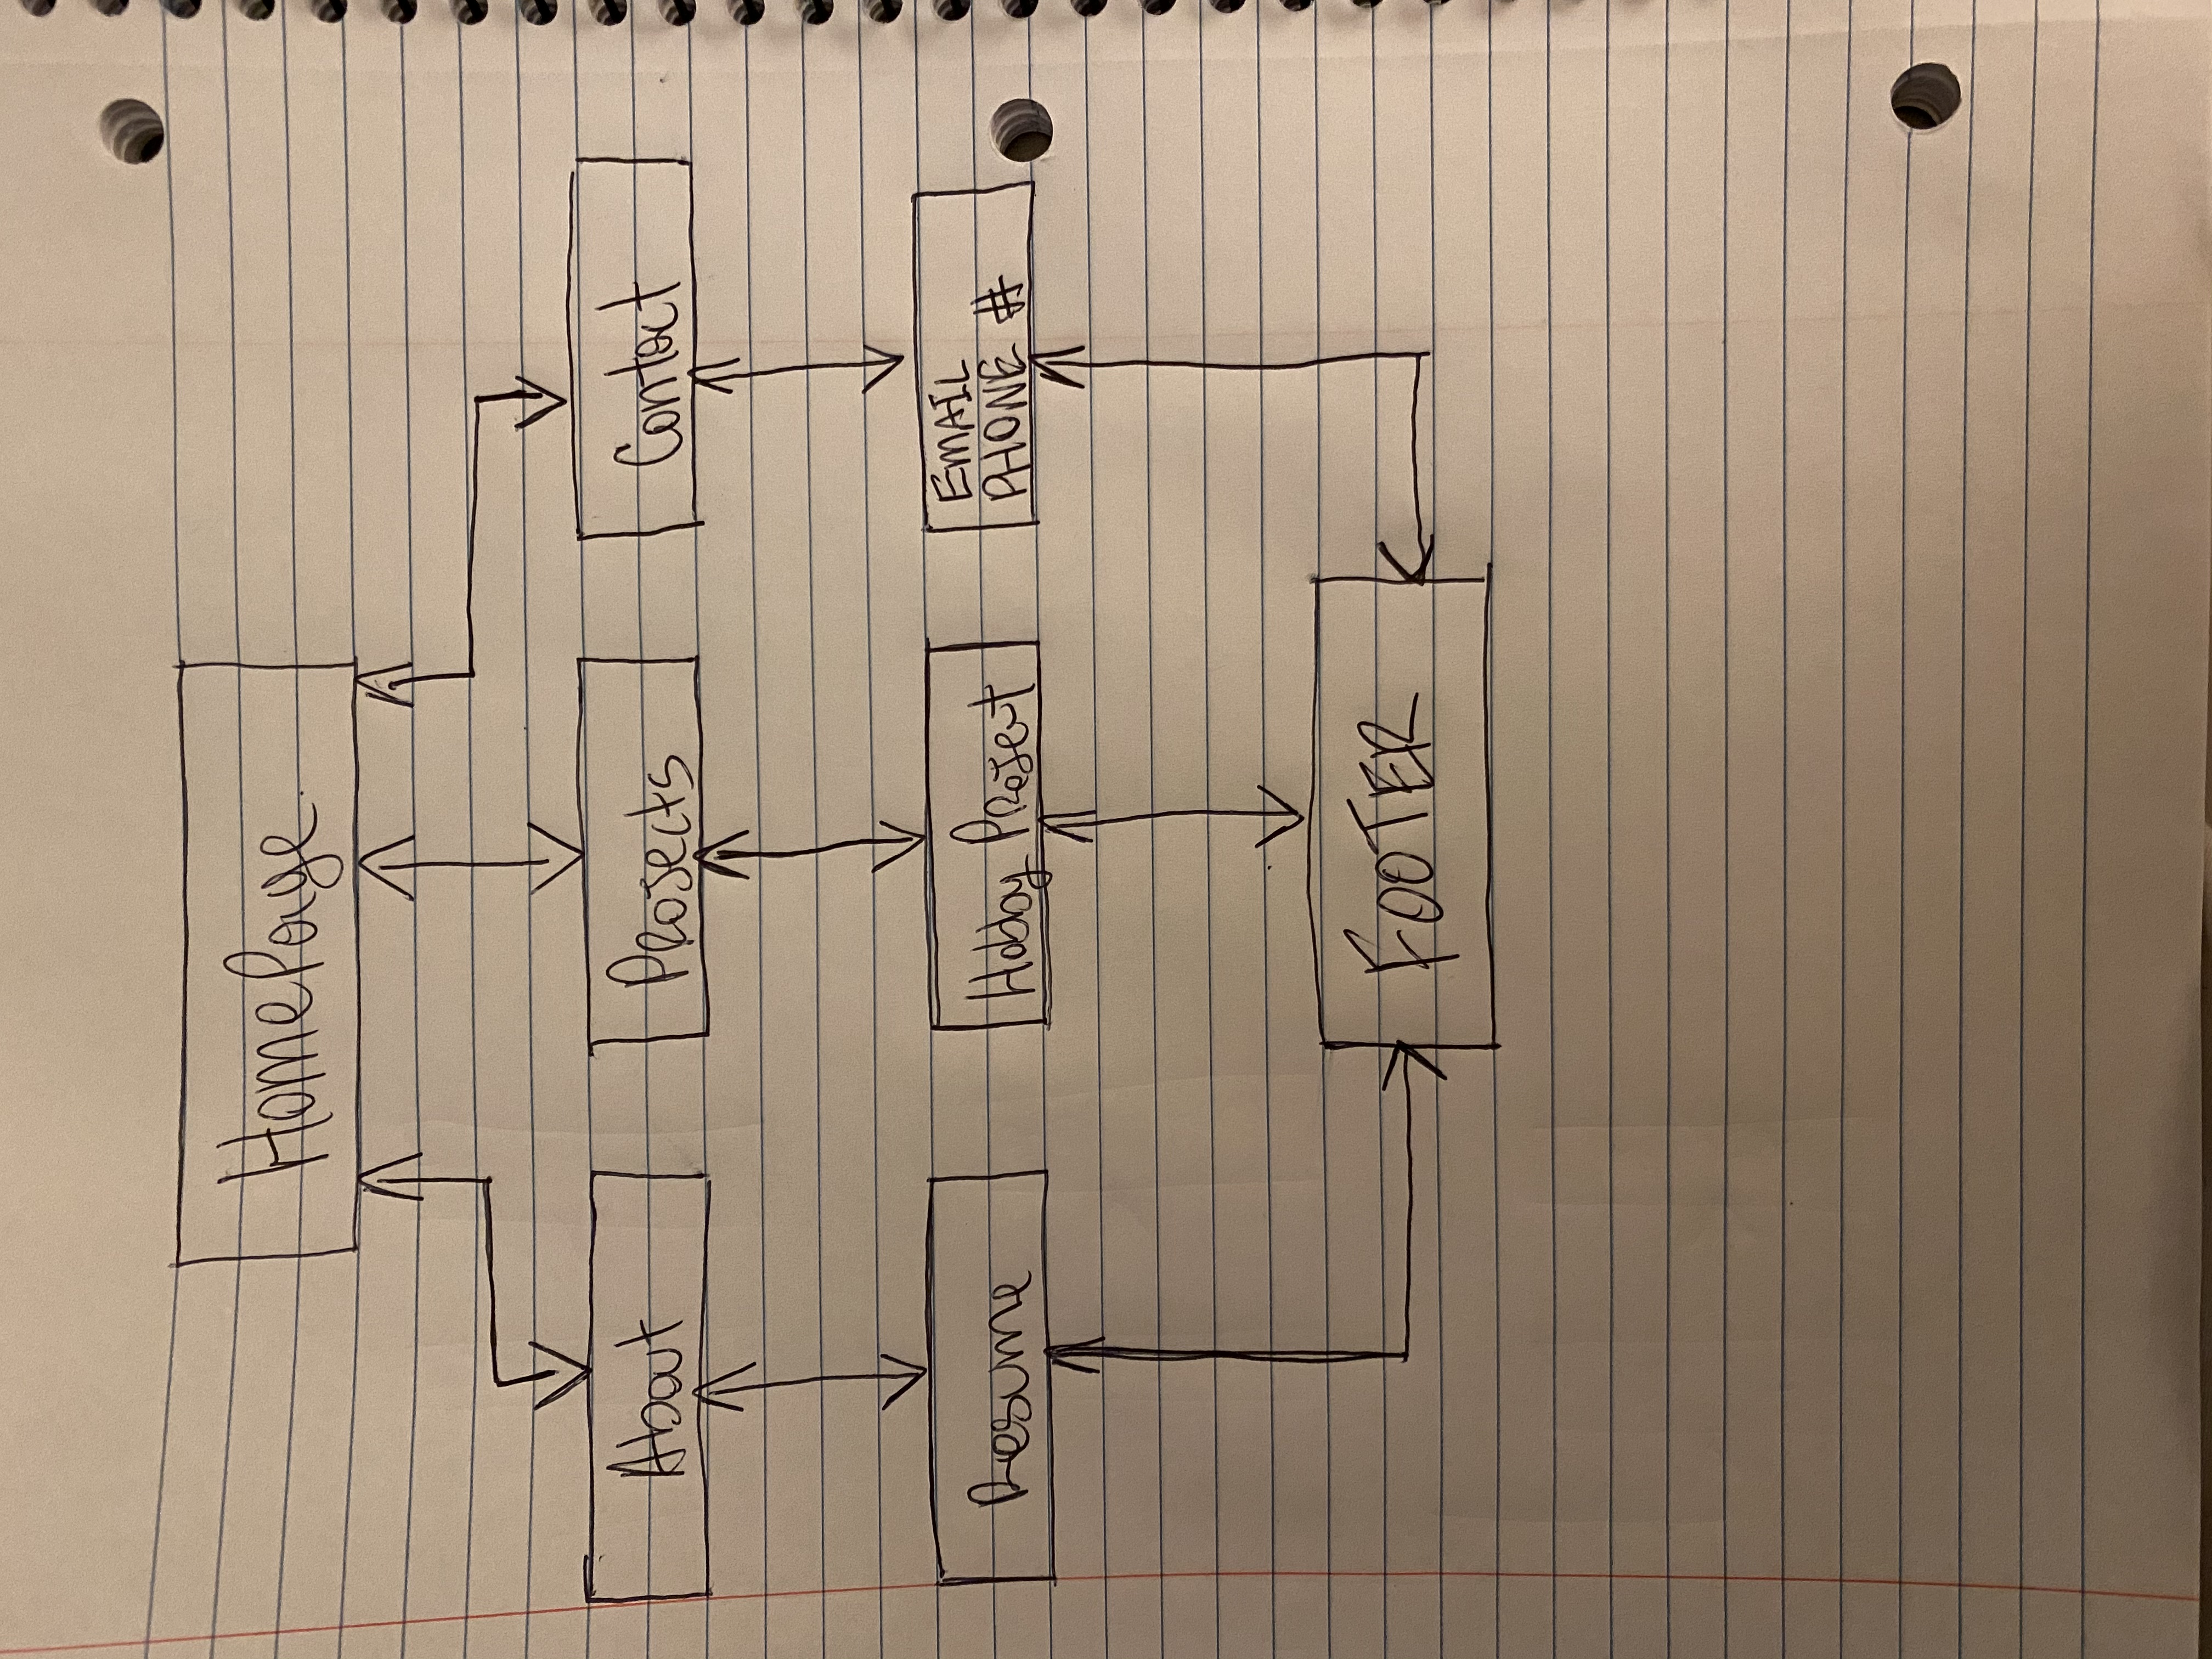 HomePage
About
Projects
Contact
Resume
Hobby Project
EMAIL
PHONE #
FOOTER